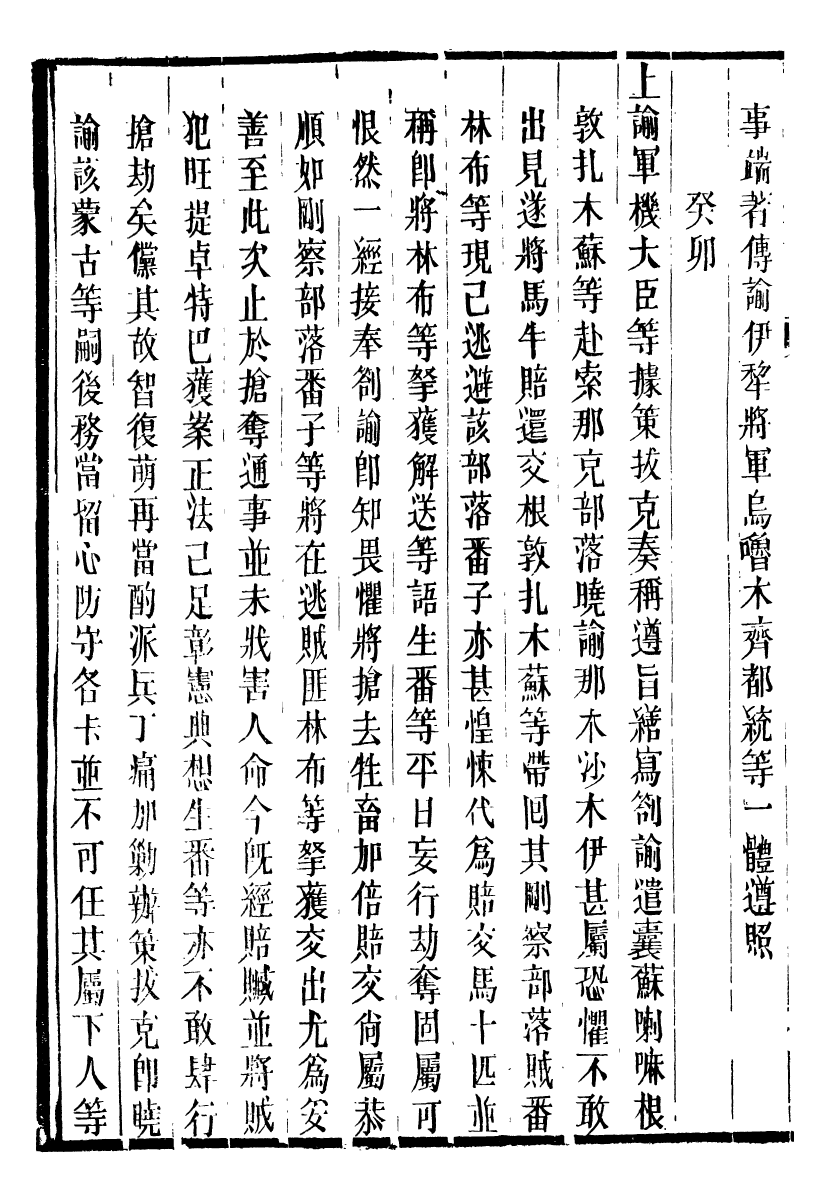 事端著傳諭伊犂將軍烏嚕木齊都統等一體遵照
癸卯
上諭軍機大臣等據策拔克奏稱遵旨繕寫劄諭遣囊蘇喇嘛根
敦扎木蘇等赴索那克部落曉諭那木沙木伊甚屬恐懼不敢
出見遂將馬牛賠還交根敦扎木蘇等帶回其剛察部落賊番
林布等現已逃避該部落番子亦甚惶悚代為賠交馬十匹並
稱卽將林布等拏獲解送等語生番等平日妄行劫奪固屬可
恨然一經接奉劄諭卽知畏懼將搶去牲畜加倍賠交尙屬恭
順如剛察部落番子等將在逃賊匪林布等拏獲交出尤為安
善至此次止於搶奪通事並未戕害人命今旣經賠贓並將賊
犯旺提卓特巴獲案正法已足彰憲典想生番等亦不敢肆行
搶劫矣儻其故智復萌再當酌派兵丁痛加勦辦策拔克卽曉
諭該蒙古等嗣後務當留心防守各卡並不可任其屬下人等